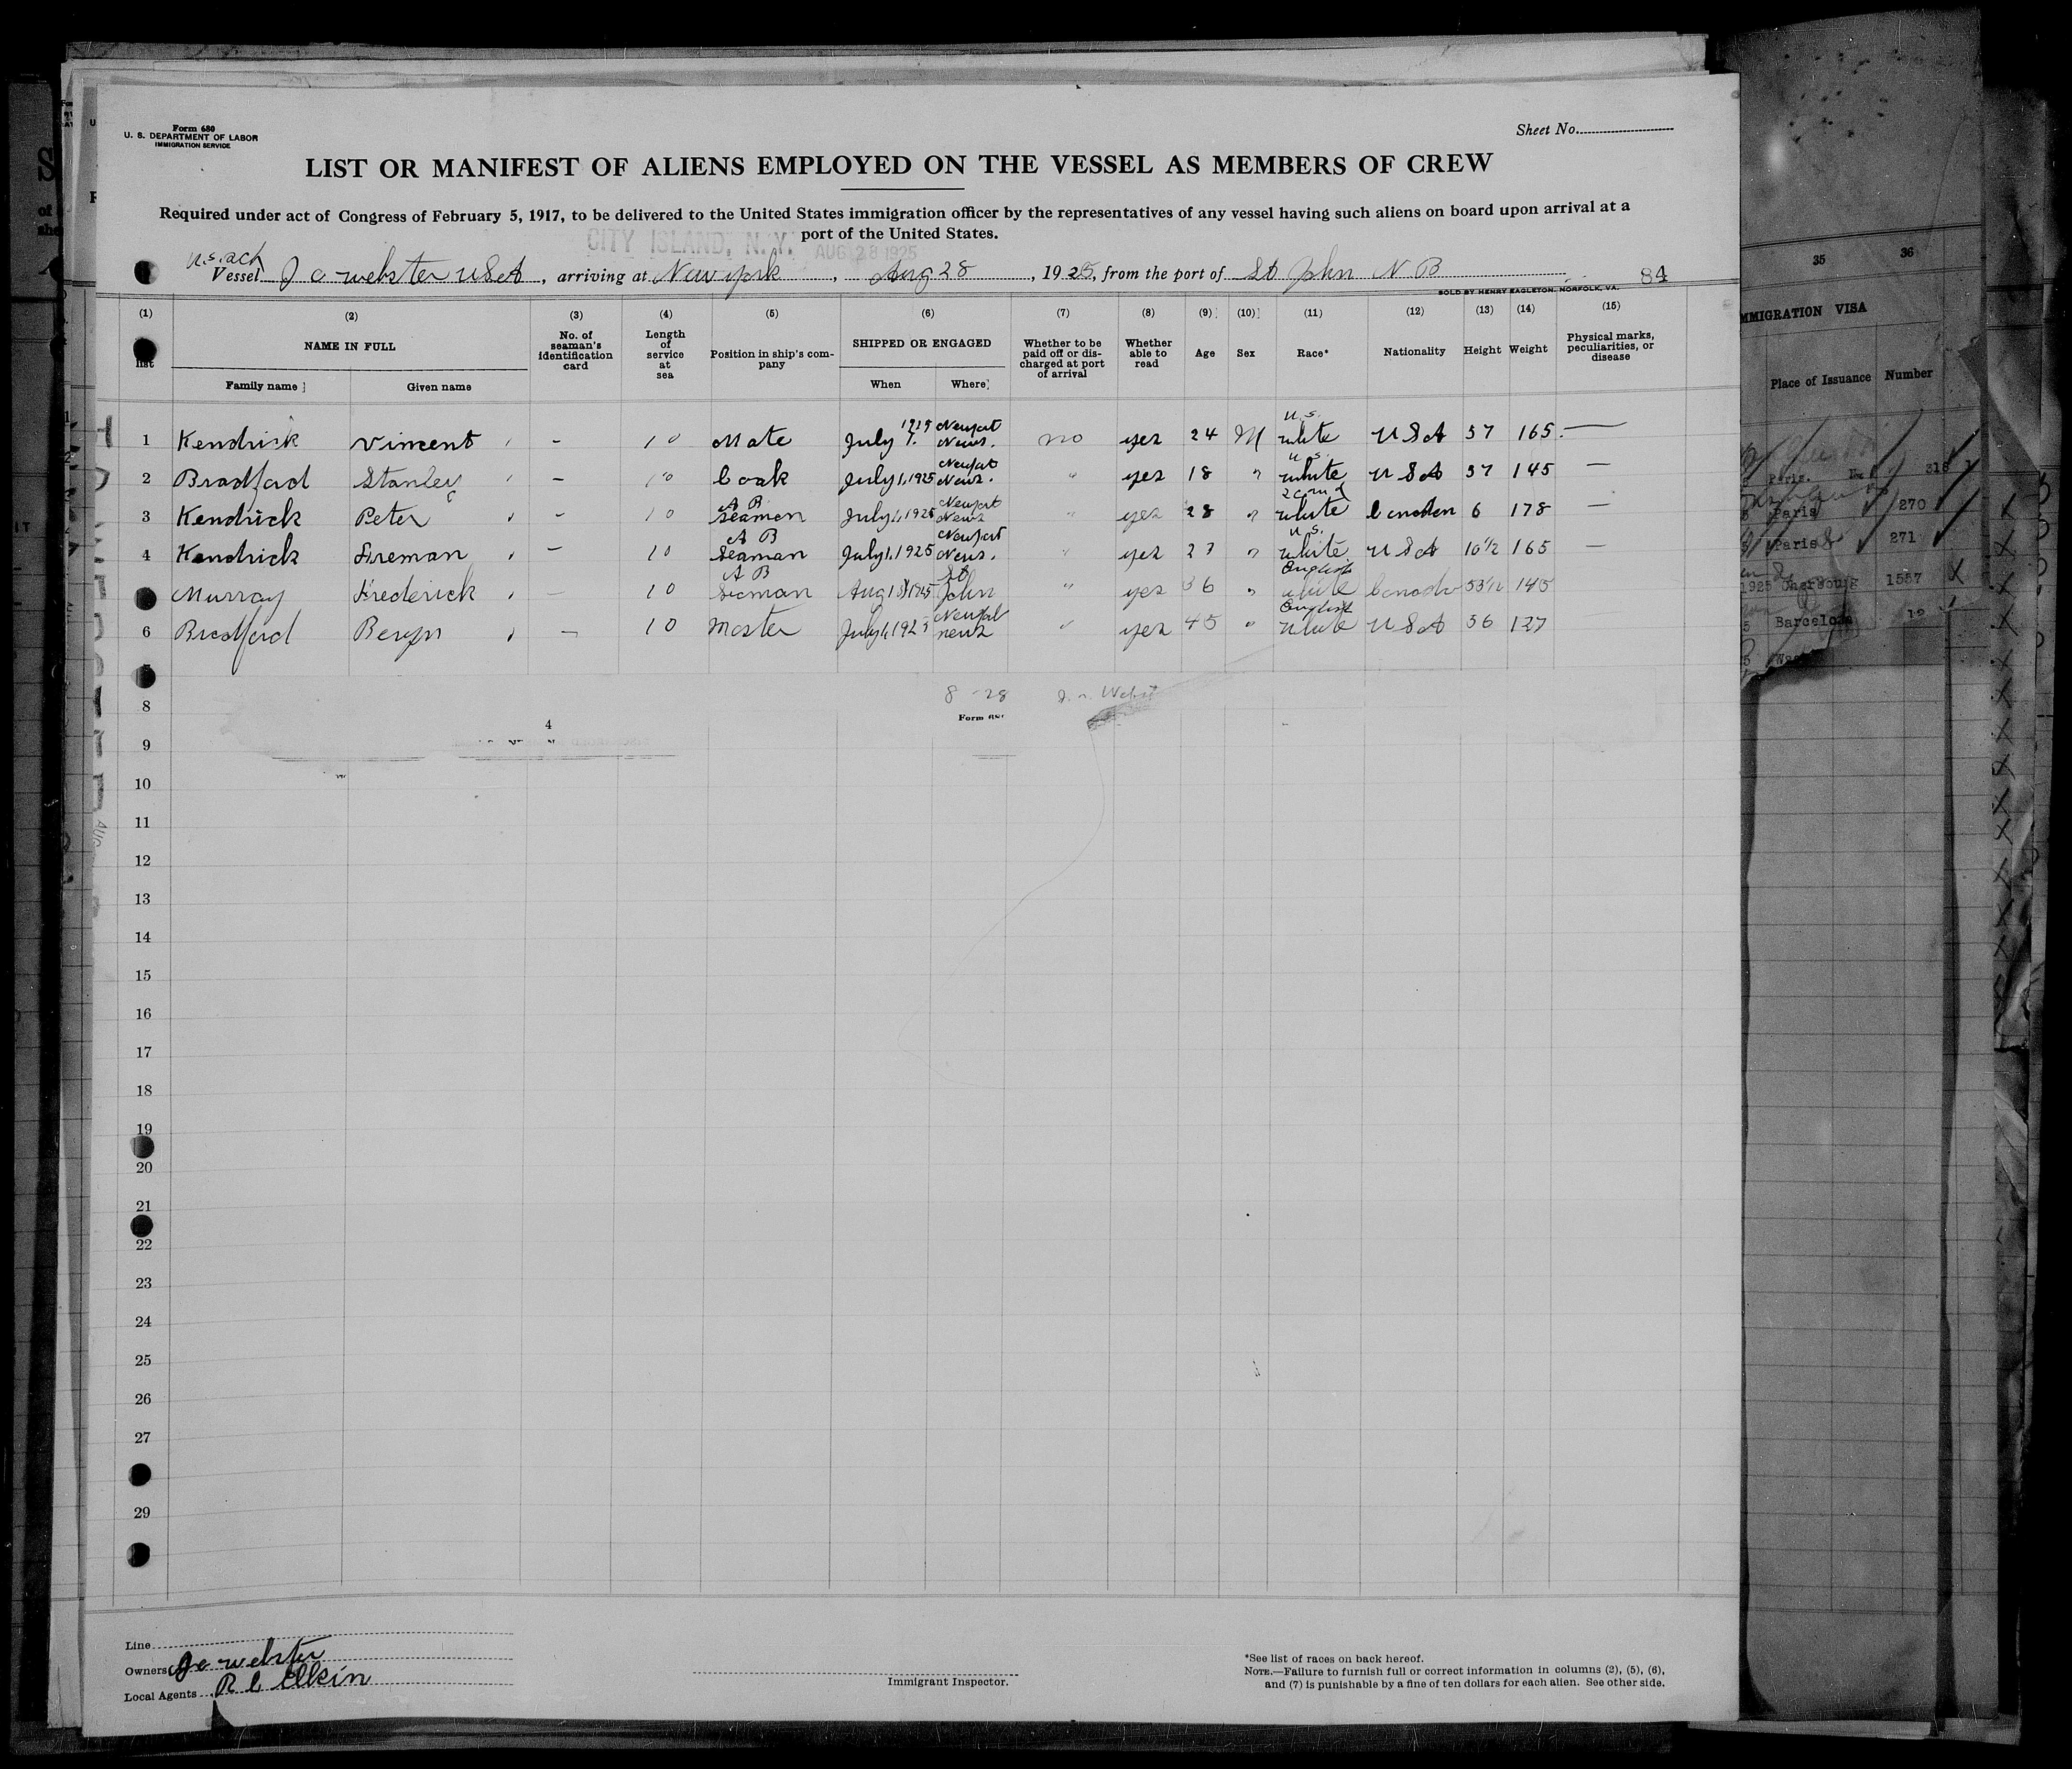 Form 680
U. S. DEPARTMENT OF LABOR
IMMIGRATION SERVICE
Sheet No.
LIST OR MANIFEST OF ALIENS EMPLOYED ON THE VESSEL AS MEMBERS OF CREW
Required under act of Congress of February 5, 1917, to be delivered to the United States immigration officer by the representatives of any vessel having such aliens on board upon arrival at a
port of the United States.
CITY ISLAND, N.Y. AUG 28 1925
Vessel J C Webster USA, arriving at New york, Aug 28, 1925, from the port of St John N B 84
SOLD BY HENRY EAGLETON, NORFOLK, VA.
(1) (2) (3) (4) (5) (6) (7) (8) (9) (10) (11) (12) (13) (14) (15)
list NAME IN FULL Family name Given name
No. of seaman's identification card
Length of service at sea
Position in ship's company
SHIPPED OR ENGAGED When Where
Whether to be paid off or discharged at port of arrival
Whether able to read
Age Sex Race* Nationality Height Weight
Physical marks, peculiarities, or disease
1 Kendrick Vincent – 10 Mate July 1. Newport News. no yes 24 M U.S. white U S A 57 165 —
2 Bradford Stanley – 10 Cook July 1, 1925 Newport News. " yes 18 " U.S. white U S A 57 145 —
3 Kendrick Peter – 10 A B Seaman July 1, 1925 Newport News " yes 28 " white 6 178 —
4 Kendrick Fireman – 10 A B Seaman July 1, 1925 Newport News. " yes 27 " U.S. white U S A 10 1/2 165 —
Murray Frederick – 10 A B Seaman Aug 1925 St John " yes 36 " English white 145
6 Bradford – 10 Master July 1, 1925 Newport News " yes 45 " English white U S A 56 127
8-28
8
4
Form
9
10
11
12
13
14
15
16
17
18
19
20
21
22
23
24
25
26
27
29
Line
Owners J C Webster
Local Agents R C Elkin
Immigrant Inspector.
*See list of races on back hereof.
NOTE.—Failure to furnish full or correct information in columns (2), (5), (6),
and (7) is punishable by a fine of ten dollars for each alien. See other side.
35 36
IMMIGRATION VISA
Place of Issuance Number
Paris. 318
Paris 270
Paris 271
1925 Cherbourg 1557
Barcelona